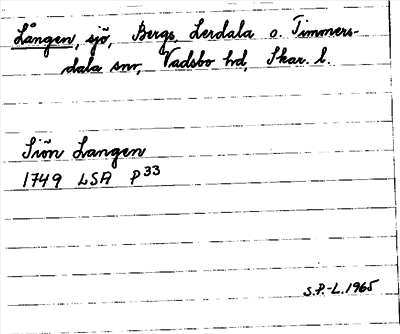 Lången, sjö, Bergs, Lerdala o. Timmers-
dala snr, Vadsbo hd, Skar. l.
Siön Langen
1749 LSA P33
S.P.-L. 1965